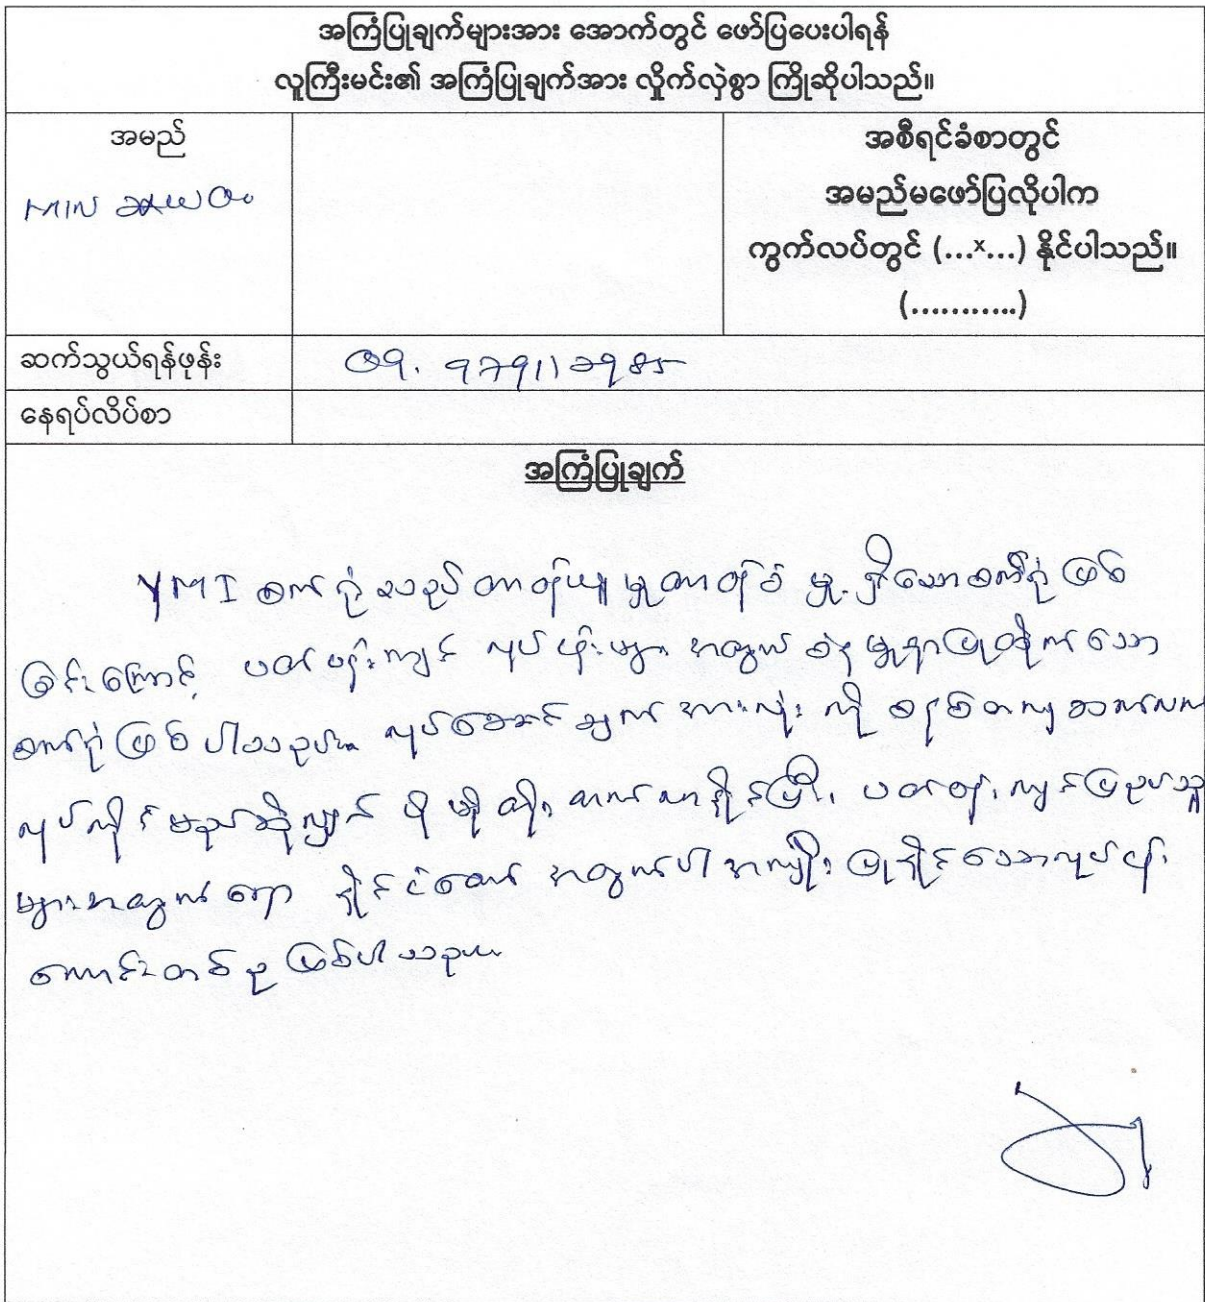 အကြံပြုချက်များအား အောက်တွင် ဖော်ပြပေးပါရန်
လူကြီးမင်း၏ အကြံပြုချက်အား လှိုက်လှဲစွာ ကြိုဆိုပါသည်။
အမည်
MIN
အစီရင်ခံစာတွင်
အမည်မဖော်ပြလိုပါက
ကွက်လပ်တွင် (...x...) နိုင်ပါသည်။
(...........)
ဆက်သွယ်ရန်ဖုန်း
နေရပ်လိပ်စာ
အကြံပြုချက်
YMI စက်ရုံသည် တာဝန်ယူမှု တာဝန်ခံမှု ရှိသော စက်ရုံ ဖြစ်
ခြင်းကြောင့် ပတ်ဝန်းကျင် လုပ်ငန်းများ အတွက်
စက်ရုံ ဖြစ်ပါသည်။ လုပ်ဆောင်ချက် အားလုံး ကို စနစ်တကျ ဆက်လက်
လုပ်ကိုင်မည်ဆိုလျှင် ပိုမို တိုးတက်လာနိုင်ပြီး၊ ပတ်ဝန်းကျင်
များအတွက်ရော နိုင်ငံတော် အတွက်ပါ အကျိုးပြုနိုင်သော လုပ်ငန်း
ကောင်းတစ်ခု ဖြစ်ပါသည်။